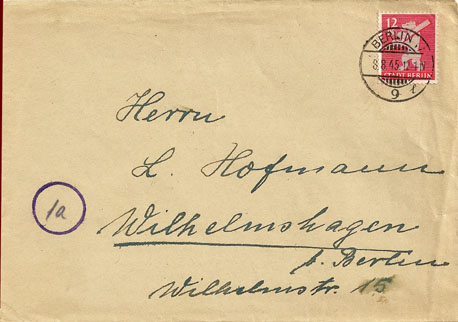 12
STADT BERLIN
BERLIN
8.8.45.12
9
Herrn
L. Hofmann
1a
Wilhelmshagen
b. Berlin
Wilhelmstr. 15